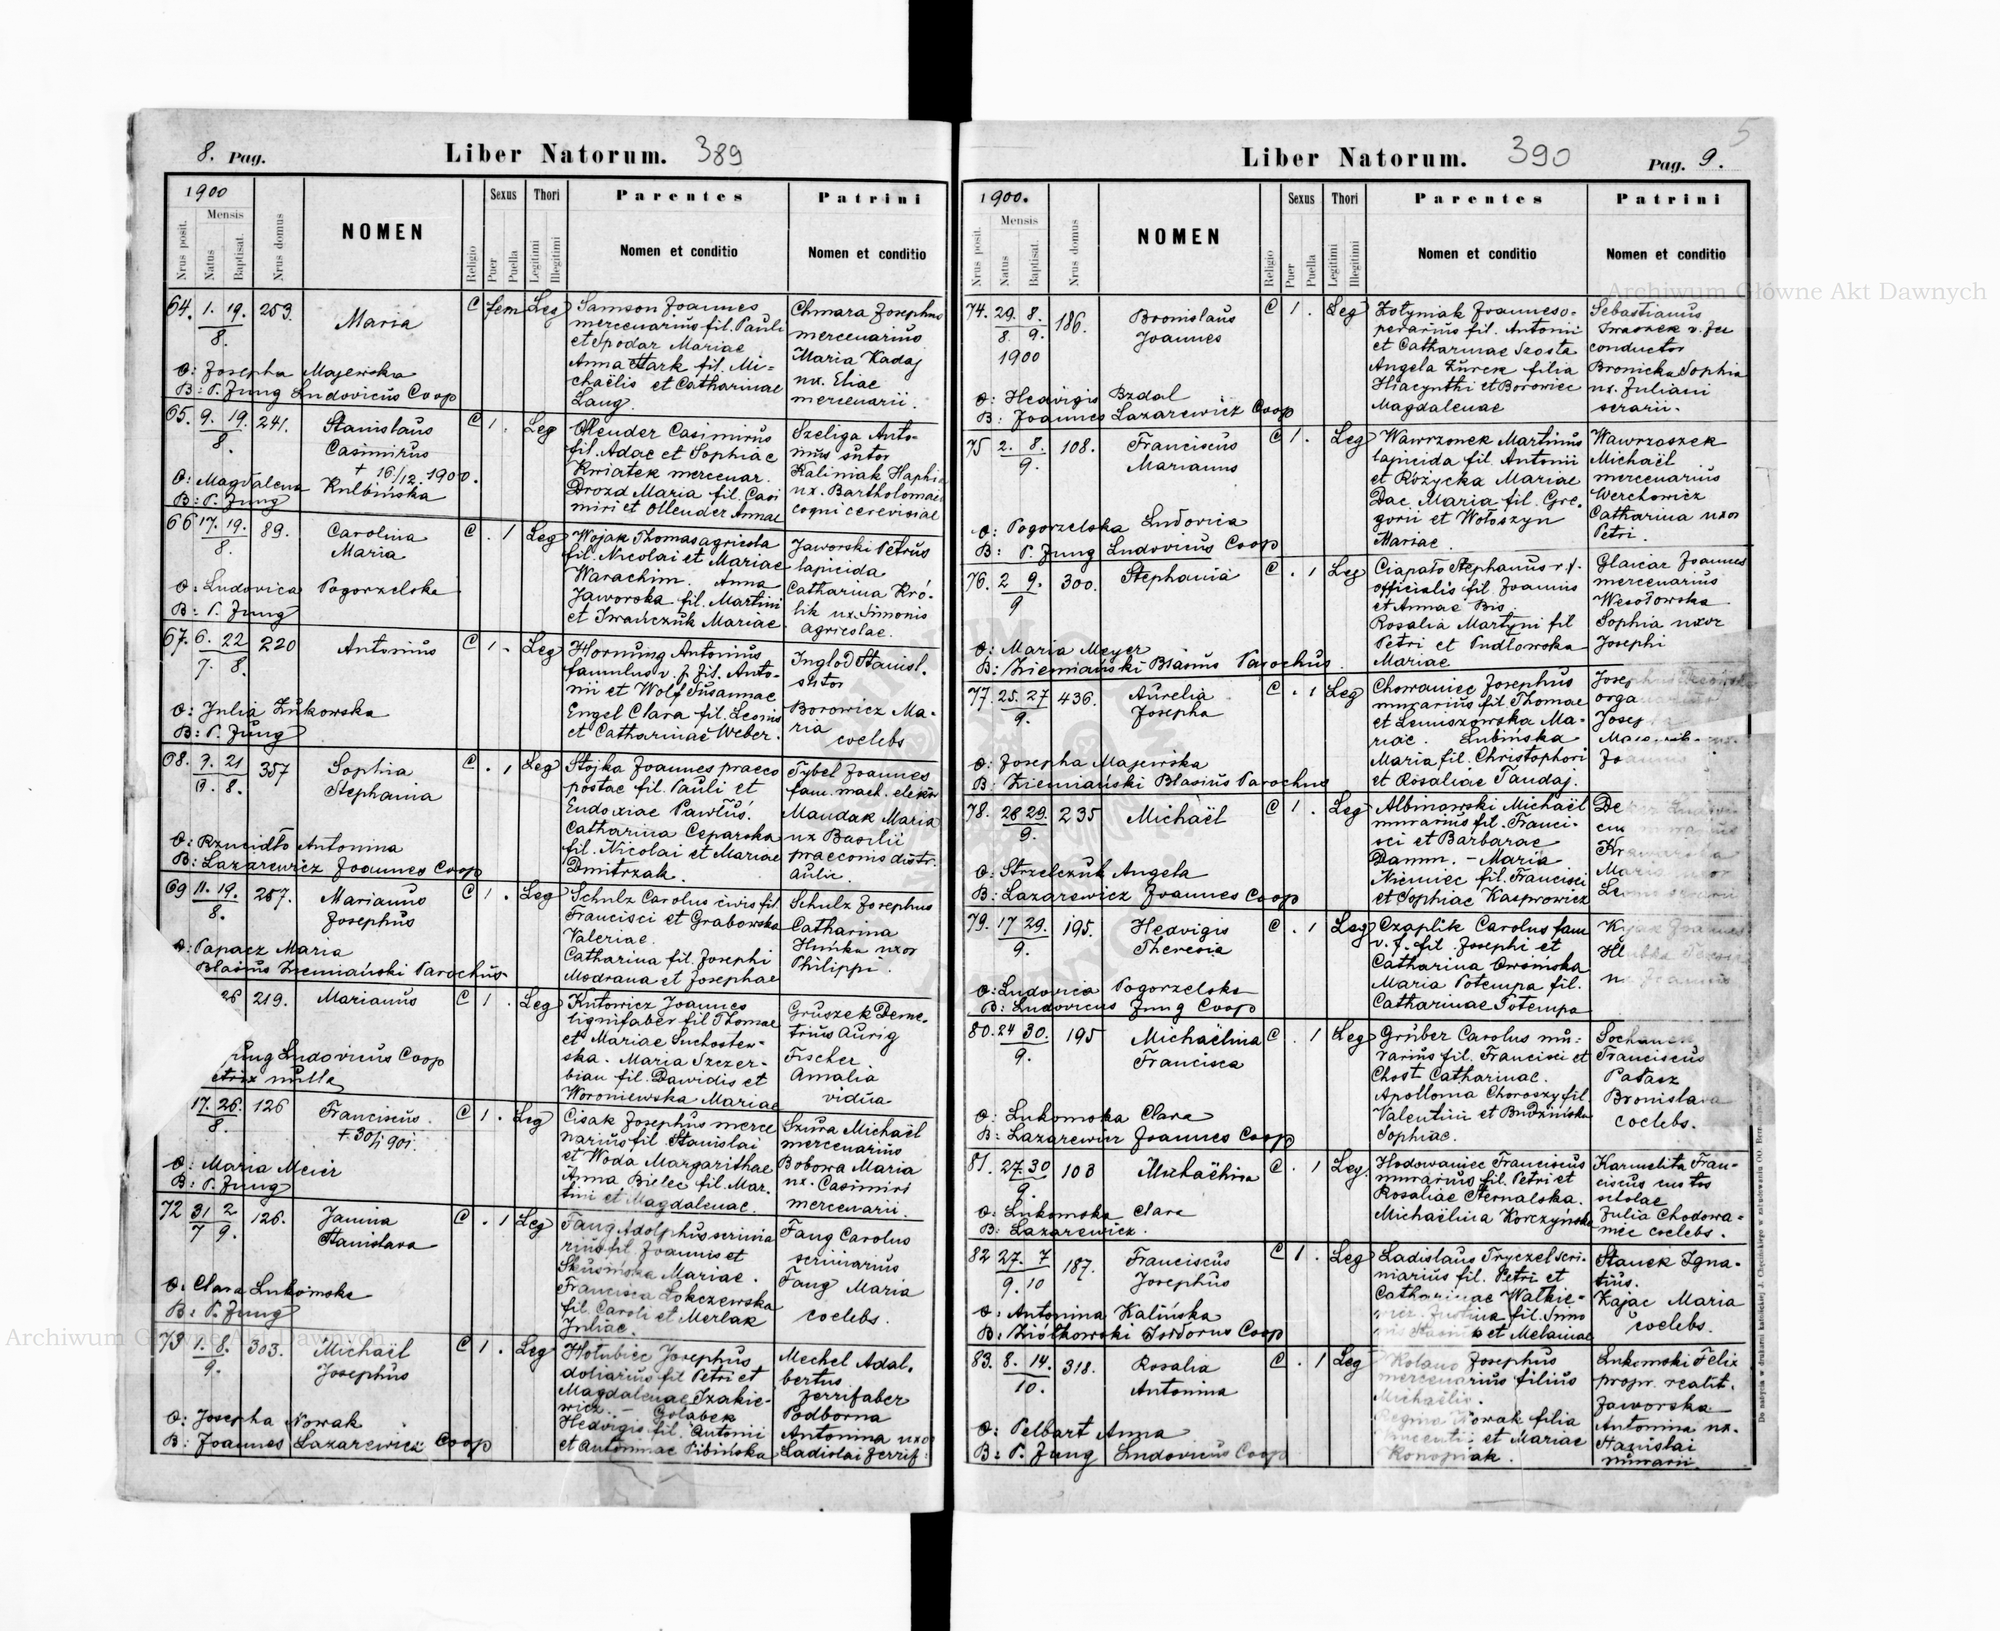 8. Pag.
Liber Natorum. 389
1900
Nrus posit.
Mensis
Natus
Baptisat.
Nrus domus
NOMEN
Religio
Sexus
Puer
Puella
Thori
Legitimi
Illegitimi
Parentes
Nomen et conditio
Patrini
Nomen et conditio
64. 1. 19. 253. Maria C fem Leg
8.
Samson Joannes
mercenarius fil. Pauli
et Spodar Mariae
Anna Stark fil. Mi-
chaëlis et Catharinae
Lang.
Chmara Josephus
mercenarius
Maria Kadaj
ux. Eliae
mercenarii.
O: Josepha Majewska
B: P. Jung Ludovicus Coop
65. 9. 19. 241. Stanislaus C 1. Leg
8.
Casimirus
+ 16/12. 1900.
Ollender Casimirus
fil. Adae et Sophiae
Kwiatek mercenar.
Drozd Maria fil. Casi
miri et Ollender Annae
Szeliga Anto-
nius sutor
Kaliniak
ux. Bartholomaei
coqui cerevisiae
O: Magdalena Kulbińska
B: P. Jung
66 17. 19. 89. Carolina C . 1 Leg
8.
Maria
Wojak Thomas agricola
fil. Nicolai et Mariae
Warachim. Anna
Jaworska fil. Martini
et Iwańczuk Mariae
Jaworski Petrus
lapicida
Catharina Kró-
lik ux Simonis
agricolae.
O: Ludovica Pogorzelska
B: P. Jung
67. 6. 22 220 Antonius C 1. Leg
7. 8.
Hornung Antonius
famulus v. f. fil. Anto-
nii et Wolf Susannae
Engel Clara fil. Leonis
et Catharinae Weber.
Inglod Stanisl.
sutor
Borowicz Ma-
ria
coelebs
O: Julia Żukowska
B: P. Jung
68. 9. 21 357 Sophia C . 1 Leg
8.
Stephania
Stojka Joannes praeco
postae fil. Pauli et
Eudoxiae Pawluś.
Catharina Ceparska
fil. Nicolai et Mariae
Dmitrzak.
Tybel Joannes
fam. mach. elektr
Maudak Maria
ux Basilii
praeconis distr.
Aulic.
O: Rzucidło Antonina
B: Lazarewicz Joannes Coop
69 11. 19. 267. Marianus C 1. Leg
8.
Josephus
Schulz Carolus civis fil.
Francisci et Grabowska
Valeriae.
Catharina fil. Josephi
Modrana et Josephae
Schulz Josephus
Catharina
Huńka uxor
Philippi.
O: Papacz Maria
Blasius Ziemiański Parochus
26 219. Marianus C 1. Leg
Kutowicz Joannes
lignifaber fil Thomae
et Mariae Suchosten-
ska. Maria Szczer-
bian fil. Dawidis et
Woroniewska Mariae
Gruszek Deme-
trius Aurig
Fischer
Amalia
vidua
Jung Ludovicus Coop
etrix nulla
17. 26. 126 Franciscus. C 1. Leg
8.
+ 30/1 901.
Cisak Josephus merce
narius fil Stanislai
et Woda Margarithae
Anna Bielec fil. Mar-
tini et Magdalenae.
Szura Michaël
mercenarius
Bobowa Maria
ux. Casimiri
mercenarii.
O: Maria Meier
B: P. Jung
72 31 2 126. Janina C . 1 Leg
7 9.
Stanislava
Fang Adolphus scrinia
rius fil. Joannis et
Skusińska Mariae.
Francisca Łokczewska
fil. Caroli et Merlak
Juliae.
Fang Carolus
scriniarius
Fang Maria
coelebs.
O: Clara Lukomska
B: P. Jung
73 1. 8. 303. Michaël C 1. Leg
9.
Josephus
Hołubiec Josephus
doliarius fil Petri et
Magdalenae Izakie-
wicz. - Gołabek
Hedvigis fil. Antonii
et Antoninae Pibińska
Mechel Adal.
bertus
ferrifaber
Podborna
Antonina uxor
Ladislai ferrif:
O: Josepha Nowak
B: Joannes Lazarewicz Coop
Liber Natorum. 390
Pag. 9.
5
1900.
Nrus posit.
Mensis
Natus
Baptisat.
Nrus domus
NOMEN
Religio
Sexus
Puer
Puella
Thori
Legitimi
Illegitimi
Parentes
Nomen et conditio
Patrini
Nomen et conditio
74. 29. 8. 186. Bronislaus C 1. Leg
8. 9.
Joannes
1900
Żołyniak Joannes o-
perarius fil. Antonii
et Catharinae Szosta
Angela Żurek filia
Hiacynthi et Borowiec
Magdalenae
Sebastianus
conductor
Bronicka Sophia
ux. Juliani
serarii.
O: Hedvigis Bzdal
B: Joannes Lazarewicz Coop
75 2. 8. 108. Franciscus C 1. Leg
9.
Marianus
Wawrzonek Martinus
lapicida fil. Antonii
et Rózycka Mariae
Dac Maria fil. Gre-
gorii et Wołoszyn
Mariae
Wawrzaszek
Michaël
mercenarius
Werchowicz
Catharina uxor
Petri.
O: Pogorzelska Ludovica
B: P. Jung Ludovicus Coop
76. 2 9. 300. Stephania C . 1 Leg
9
Ciapało Stephanus v. f.
officialis fil. Joannis
et Annae Bis.
Rosalia Martyni fil
Petri et Pudlowska
Mariae
Glaicar Joannes
mercenarius
Wesołowska
Sophia uxor
Josephi
O: Maria Meyer
B: Ziemiański Blasius Parochus.
77. 25. 27 436. Aurelia C . 1 Leg
9.
Josepha
Chowaniec Josephus
murarius fil Thomae
et Lewiszowska Ma-
riae. Lubińska
Maria fil. Christophori
et Rosaliae Tandaj.
Josephus
O: Josepha Majewska
B: Ziemiański Blasius Parochus
78. 28 29. 235 Michaël C 1. Leg
9.
Albinowski Michaël
murarius fil. Franci-
sci et Barbarae
Damm. - Maria
Niemiec fil. Francisci
et Sophiae Kasprowicz
O: Strzelczuk Angela
B: Lazarewicz Joannes Coop
79. 17 29. 195. Hedvigis C . 1 Leg
9.
Theresia
Czaplik Carolus fam
v. f. fil. Josephi et
Catharina Owsińska
Maria Potempa fil.
Catharinae Potempa
O: Ludovica Pogorzelska
B: Ludovicus Jung Coop
80. 24 30. 195 Michaëlina C . 1 Leg
9.
Francisca
Grüber Carolus mu-
rarius fil. Francisci et
Chost Catharinae.
Apollonia Choroszy fil.
Valentini et Budzińska
Sophiae.
Franciscus
Pałasz
Bronislava
coelebs.
O: Lukomska Clara
B: Lazarewicz Joannes Coop
81. 27. 30 103 Michaëlina C . 1 Leg
9.
Hodowaniec Franciscus
murarius fil. Petri et
Rosaliae Sternalska.
Michaëlina Korczyńska
Karmelita Fran-
ciscus custos
scholae
Julia Chodowa-
niec coelebs.
O: Lukomska Clara
B: Lazarewicz.
82 27. 7 187. Franciscus C 1. Leg
9. 10
Josephus
Ladislaus Tryczel scri-
niarius fil. Petri et
Catharinae Walkie-
wicz. Justina fil. Simo
nis et Melaniae
Stanek Igna-
tius.
Kajac Maria
coelebs.
O: Antonina Kalińska
B: Ziółkowski Isidorus Coop
83. 8. 14. 318. Rosalia C . 1 Leg
10.
Antonina
Kolano Josephus
mercenarius filius
Michaëlis.
Regina Nowak filia
Vincentii et Mariae
Konopiak.
Lukomski Felix
propr. realit.
Jaworska
Antonina ux.
Stanislai
murarii.
O: Pelbart Anna
B: P. Jung Ludovicus Coop
Do nabycia w drukarni katolickiej J. Chęcińskiego w zabudowaniu OO. Bern
Archiwum Główne Akt Dawnych
Archiwum Główne Akt Dawnych